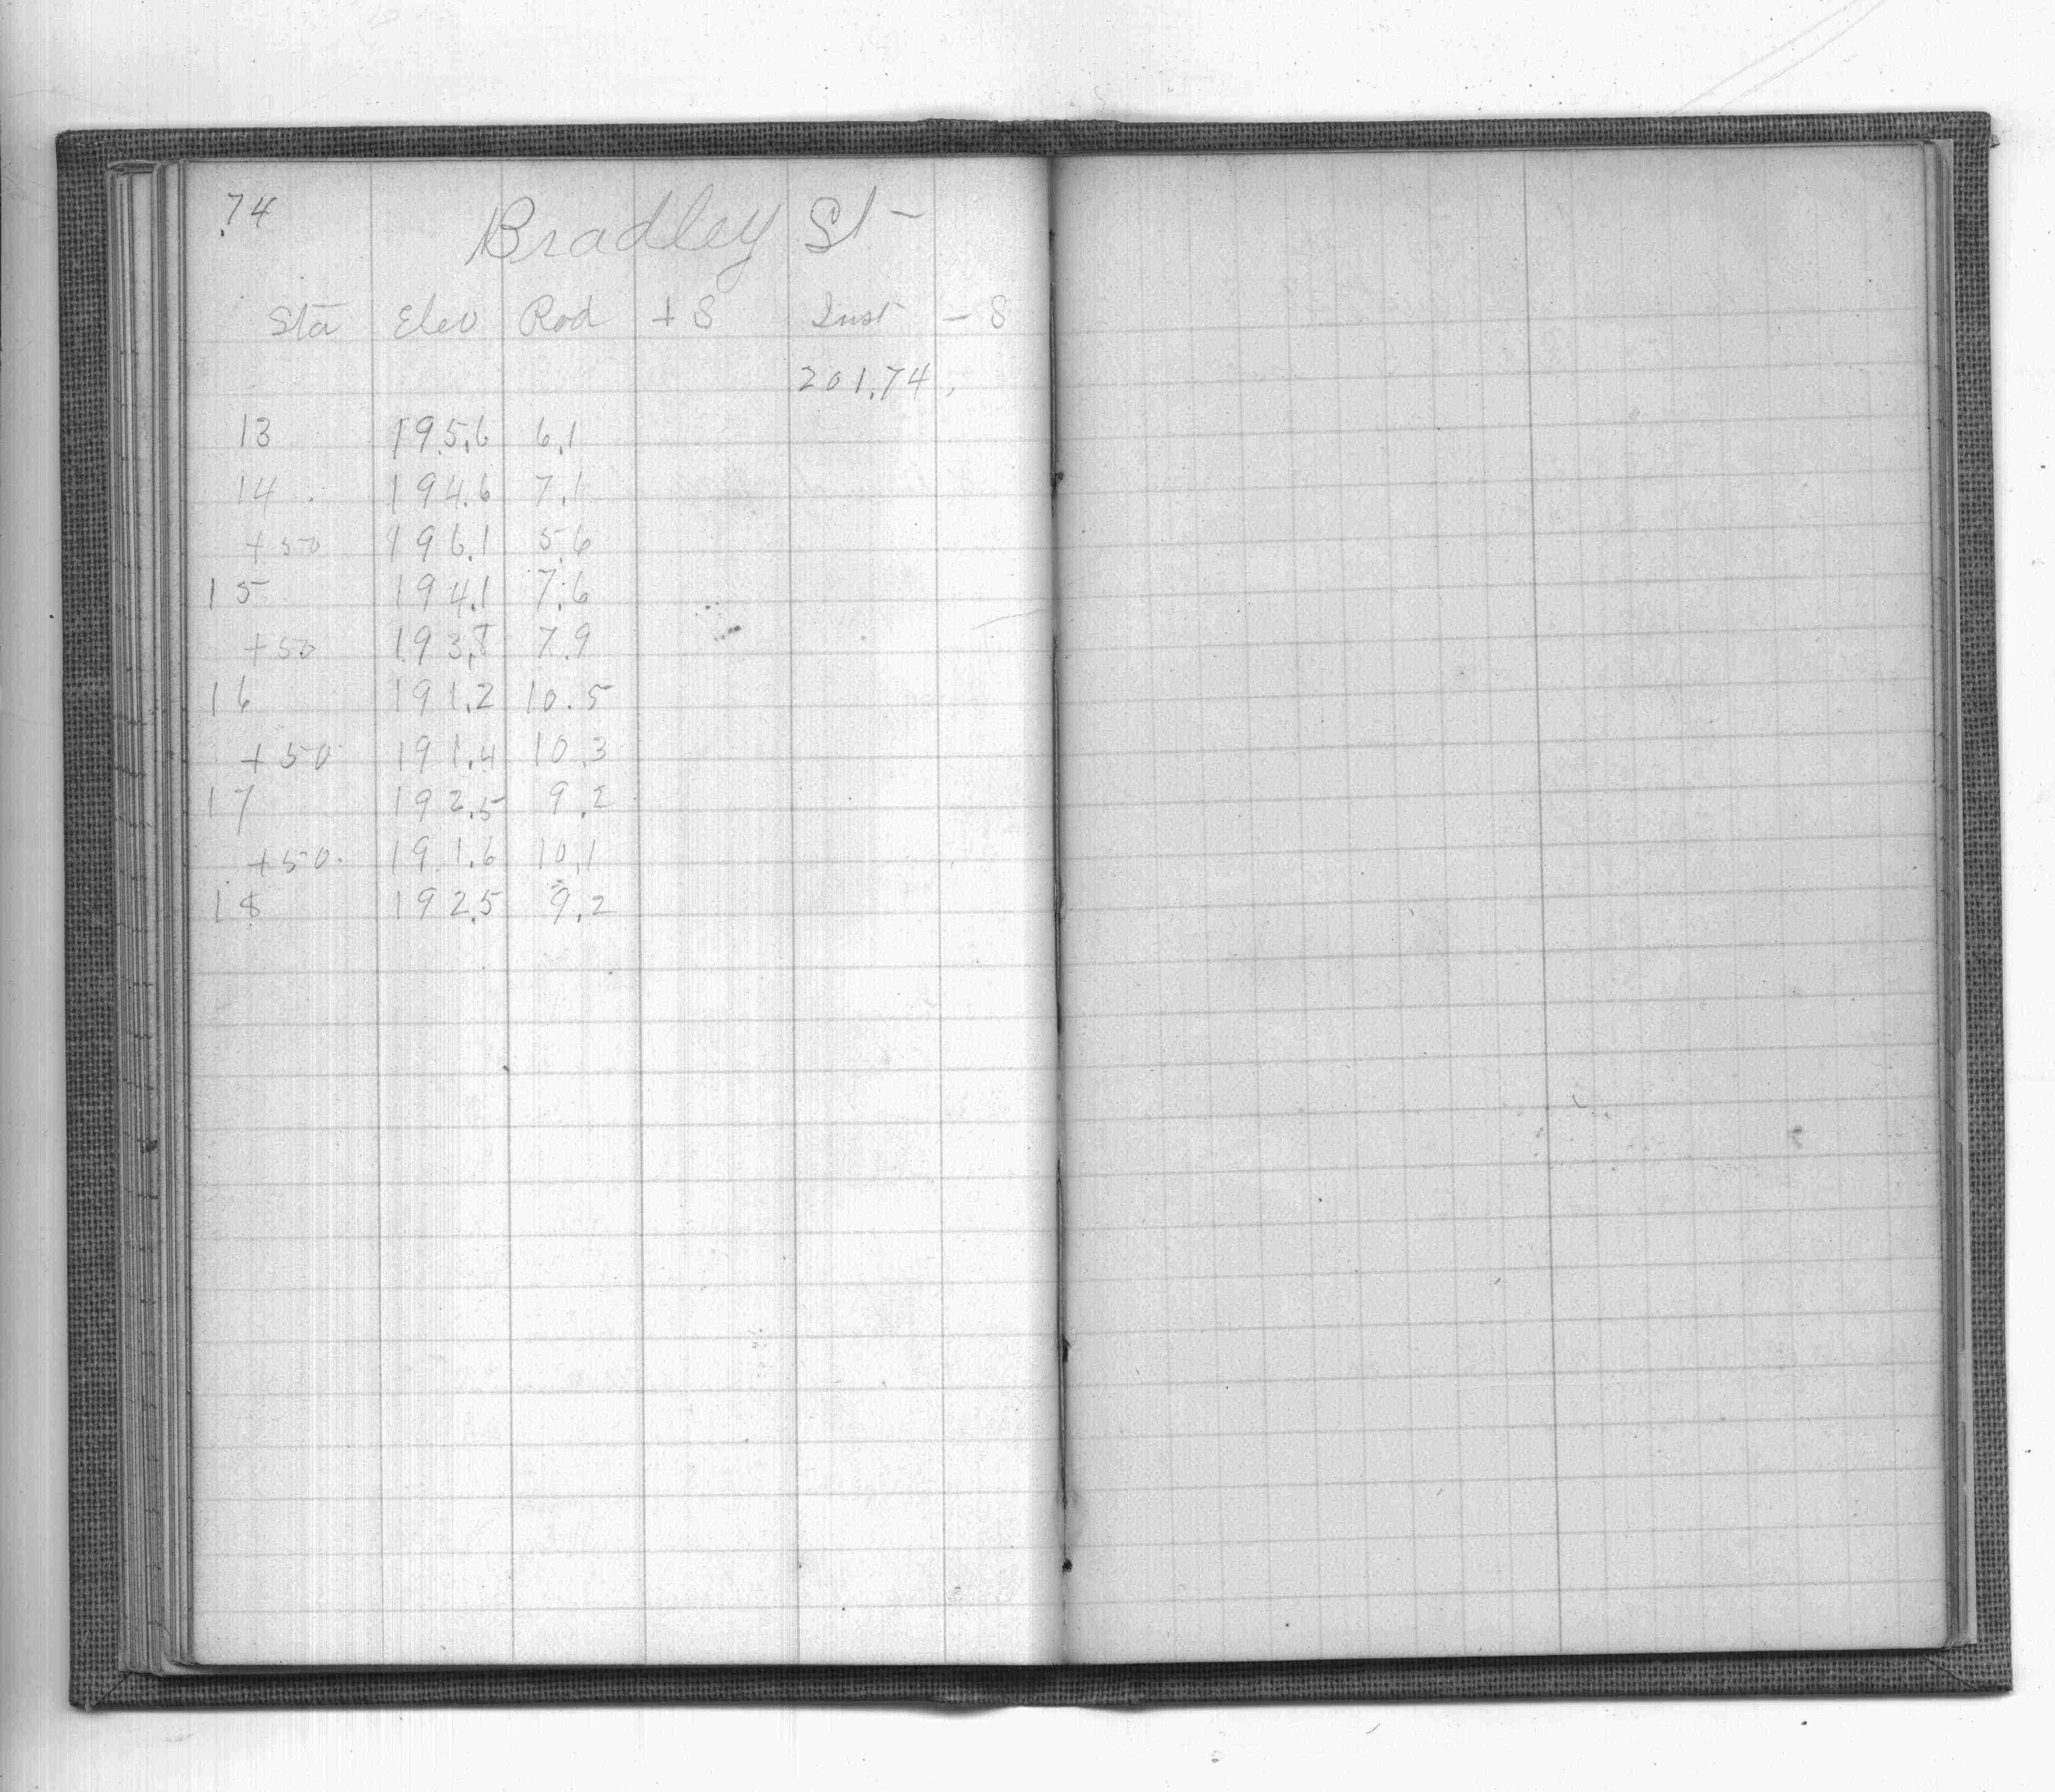 74
Bradley St
Sta Elev Rod + S Inst - S
201.74
13 195.6 6.1
14 194.6 7.1
+50 196.1 5.6
15 194.1 7.6
+50 193.8 7.9
16 191.2 10.5
+50 191.4 10.3
17 192.5 9.2
+50 191.6 10.1
18 192.5 9.2